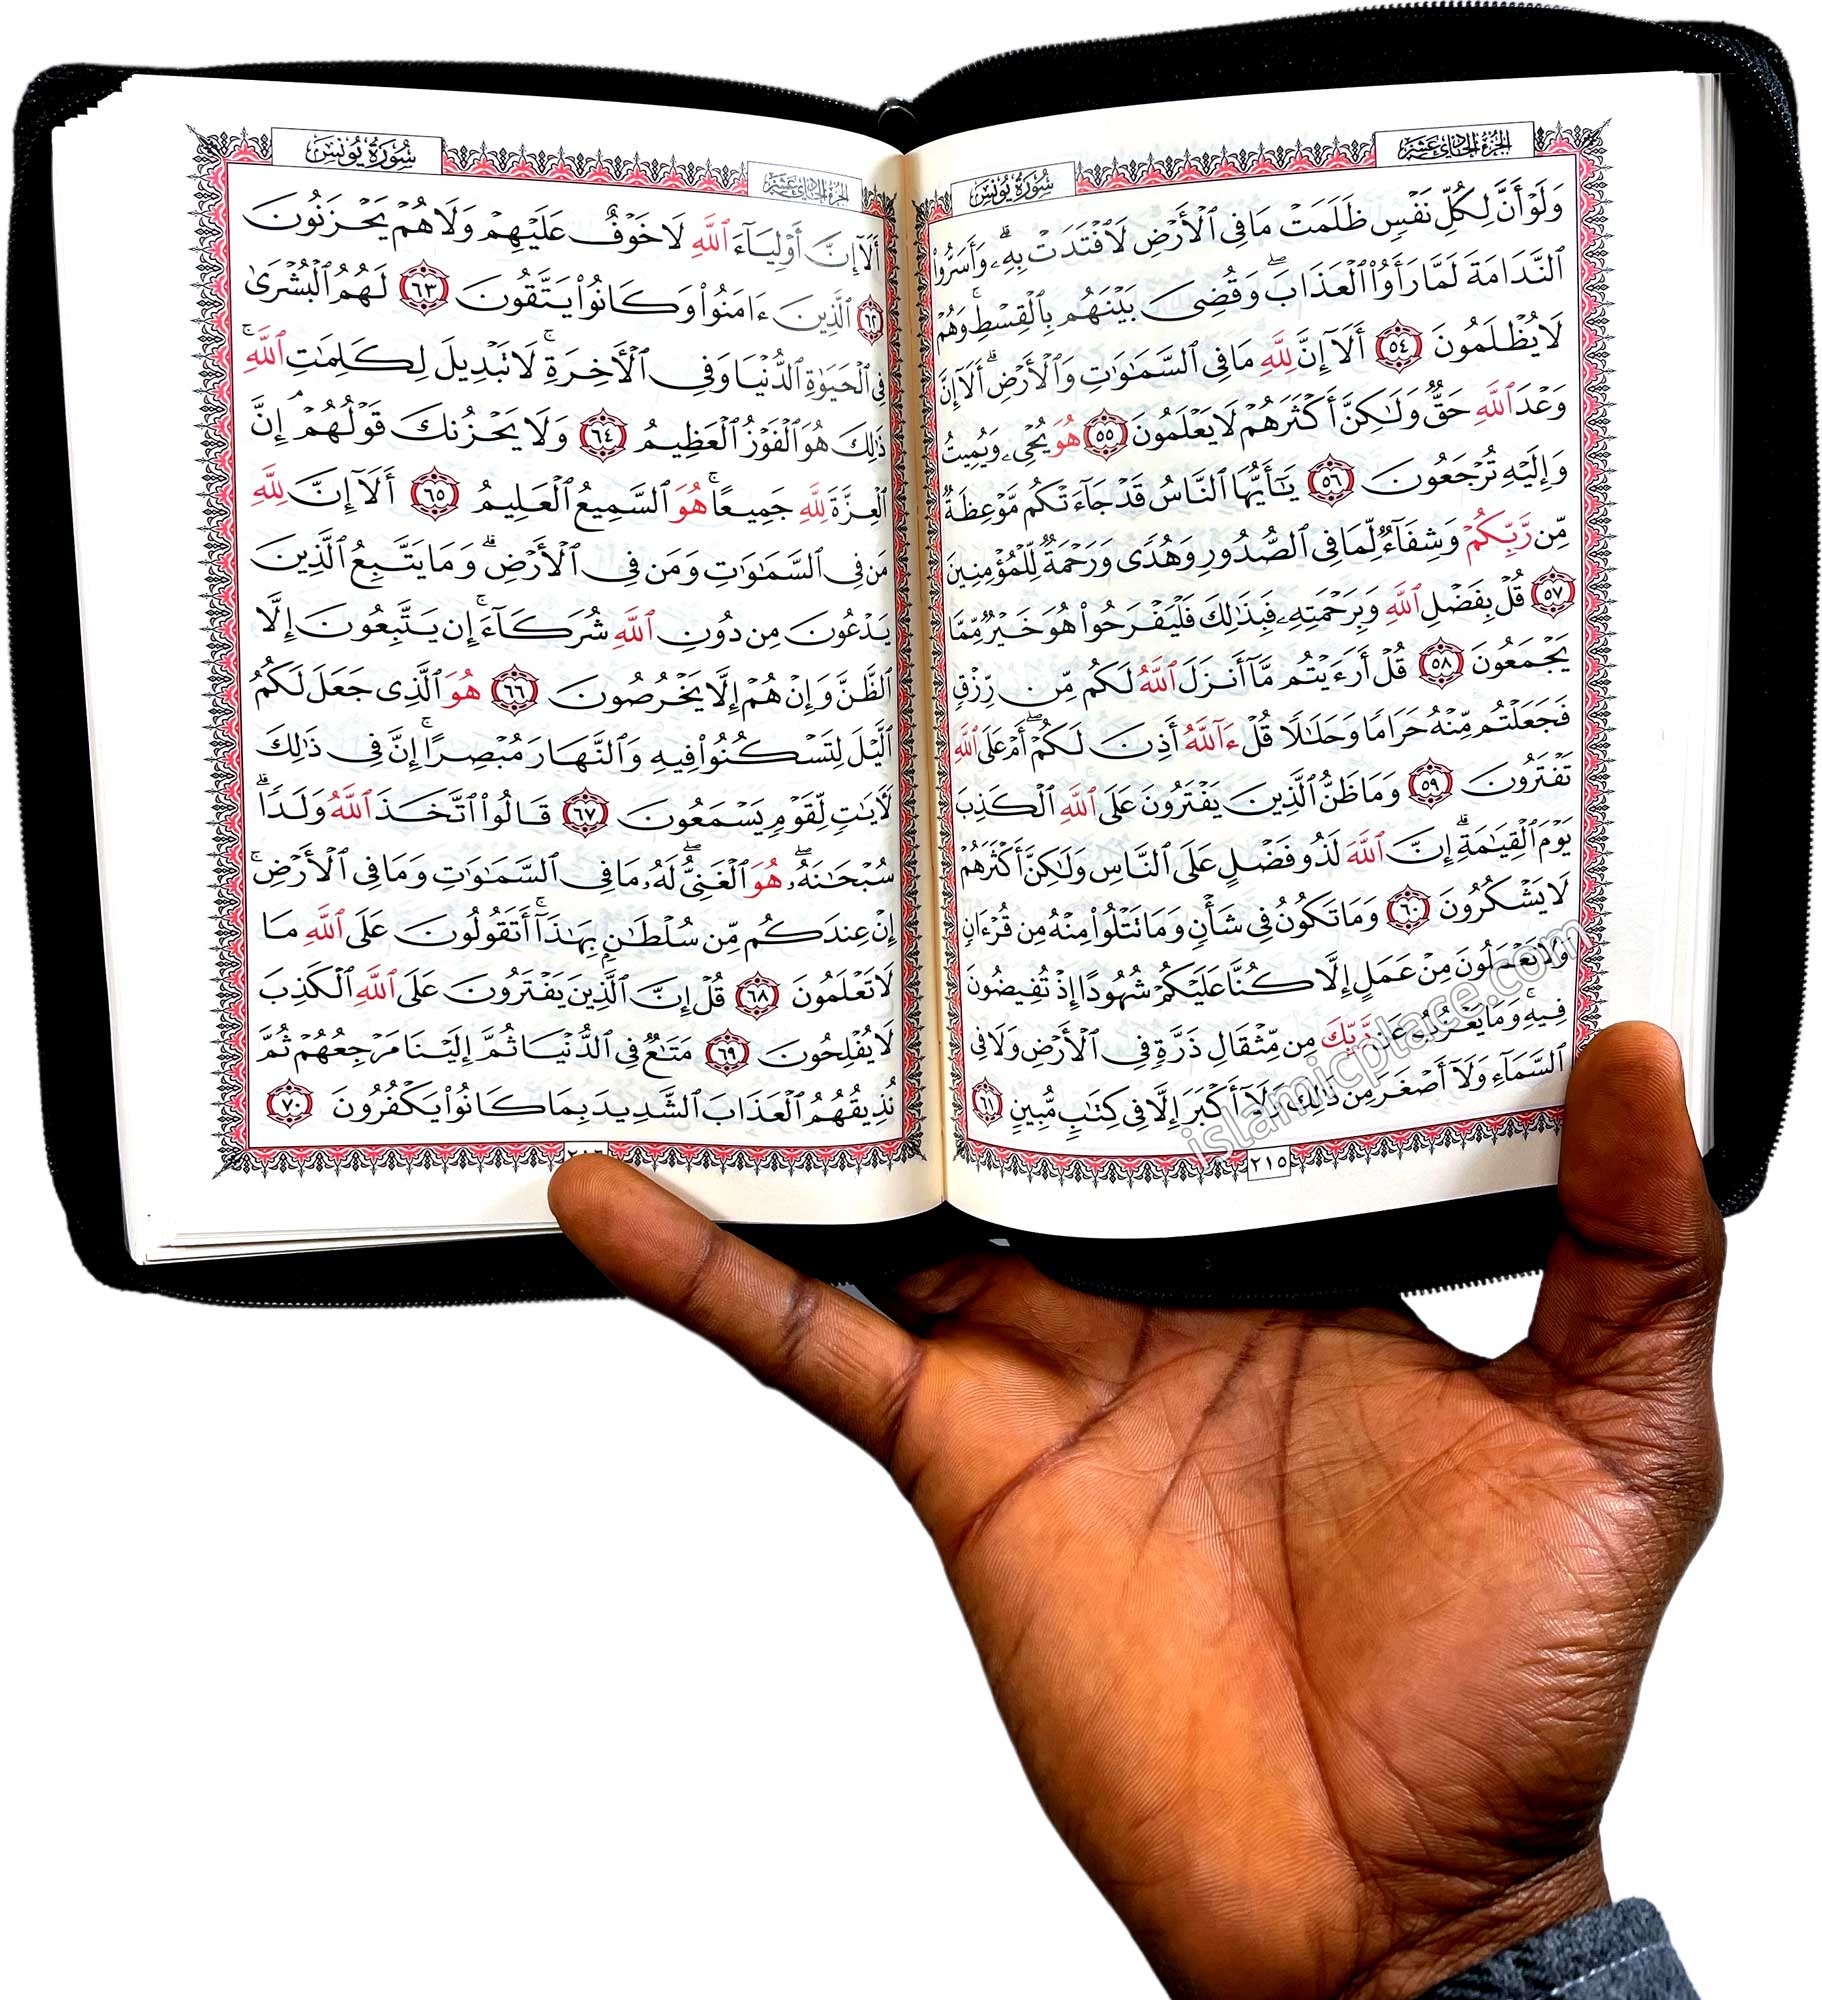 الجزء الحادي عشر
سورة يونس
وَلَوْ أَنَّ لِكُلِّ نَفْسٍ ظَلَمَتْ مَا فِى ٱلْأَرْضِ لَٱفْتَدَتْ بِهِۦۗ وَأَسَرُّوا۟
ٱلنَّدَامَةَ لَمَّا رَأَوُا۟ ٱلْعَذَابَۖ وَقُضِىَ بَيْنَهُم بِٱلْقِسْطِۚ وَهُمْ
لَا يُظْلَمُونَ ٥٤ أَلَآ إِنَّ لِلَّهِ مَا فِى ٱلسَّمَٰوَٰتِ وَٱلْأَرْضِۗ أَلَآ إِنَّ
وَعْدَ ٱللَّهِ حَقٌّ وَلَٰكِنَّ أَكْثَرَهُمْ لَا يَعْلَمُونَ ٥٥ هُوَ يُحْىِۦ وَيُمِيتُ
وَإِلَيْهِ تُرْجَعُونَ ٥٦ يَٰٓأَيُّهَا ٱلنَّاسُ قَدْ جَآءَتْكُم مَّوْعِظَةٌ
مِّن رَّبِّكُمْ وَشِفَآءٌ لِّمَا فِى ٱلصُّدُورِ وَهُدًى وَرَحْمَةٌ لِّلْمُؤْمِنِينَ
٥٧ قُلْ بِفَضْلِ ٱللَّهِ وَبِرَحْمَتِهِۦ فَبِذَٰلِكَ فَلْيَفْرَحُوا۟ هُوَ خَيْرٌ مِّمَّا
يَجْمَعُونَ ٥٨ قُلْ أَرَءَيْتُم مَّآ أَنزَلَ ٱللَّهُ لَكُم مِّن رِّزْقٍ
فَجَعَلْتُم مِّنْهُ حَرَامًا وَحَلَٰلًا قُلْ ءَآللَّهُ أَذِنَ لَكُمْۖ أَمْ عَلَى ٱللَّهِ
تَفْتَرُونَ ٥٩ وَمَا ظَنُّ ٱلَّذِينَ يَفْتَرُونَ عَلَى ٱللَّهِ ٱلْكَذِبَ
يَوْمَ ٱلْقِيَٰمَةِۗ إِنَّ ٱللَّهَ لَذُو فَضْلٍ عَلَى ٱلنَّاسِ وَلَٰكِنَّ أَكْثَرَهُمْ
لَا يَشْكُرُونَ ٦٠ وَمَا تَكُونُ فِى شَأْنٍ وَمَا تَتْلُوا۟ مِنْهُ مِن قُرْءَانٍ
وَلَا تَعْمَلُونَ مِنْ عَمَلٍ إِلَّا كُنَّا عَلَيْكُمْ شُهُودًا إِذْ تُفِيضُونَ
فِيهِۚ وَمَا يَعْزُبُ عَن رَّبِّكَ مِن مِّثْقَالِ ذَرَّةٍ فِى ٱلْأَرْضِ وَلَا فِى
ٱلسَّمَآءِ وَلَآ أَصْغَرَ مِن ذَٰلِكَ وَلَآ أَكْبَرَ إِلَّا فِى كِتَٰبٍ مُّبِينٍ ٦١
٢١٥
islamicplace.com
سورة يونس
الجزء الحادي عشر
أَلَآ إِنَّ أَوْلِيَآءَ ٱللَّهِ لَا خَوْفٌ عَلَيْهِمْ وَلَا هُمْ يَحْزَنُونَ
٦٢ ٱلَّذِينَ ءَامَنُوا۟ وَكَانُوا۟ يَتَّقُونَ ٦٣ لَهُمُ ٱلْبُشْرَىٰ
فِى ٱلْحَيَوٰةِ ٱلدُّنْيَا وَفِى ٱلْأَخِرَةِۚ لَا تَبْدِيلَ لِكَلِمَٰتِ ٱللَّهِۚ
ذَٰلِكَ هُوَ ٱلْفَوْزُ ٱلْعَظِيمُ ٦٤ وَلَا يَحْزُنكَ قَوْلُهُمْۘ إِنَّ
ٱلْعِزَّةَ لِلَّهِ جَمِيعًاۚ هُوَ ٱلسَّمِيعُ ٱلْعَلِيمُ ٦٥ أَلَآ إِنَّ لِلَّهِ
مَن فِى ٱلسَّمَٰوَٰتِ وَمَن فِى ٱلْأَرْضِۗ وَمَا يَتَّبِعُ ٱلَّذِينَ
يَدْعُونَ مِن دُونِ ٱللَّهِ شُرَكَآءَۚ إِن يَتَّبِعُونَ إِلَّا
ٱلظَّنَّ وَإِنْ هُمْ إِلَّا يَخْرُصُونَ ٦٦ هُوَ ٱلَّذِى جَعَلَ لَكُمُ
ٱلَّيْلَ لِتَسْكُنُوا۟ فِيهِ وَٱلنَّهَارَ مُبْصِرًاۚ إِنَّ فِى ذَٰلِكَ
لَءَايَٰتٍ لِّقَوْمٍ يَسْمَعُونَ ٦٧ قَالُوا۟ ٱتَّخَذَ ٱللَّهُ وَلَدًاۗ
سُبْحَٰنَهُۥۖ هُوَ ٱلْغَنِىُّۖ لَهُۥ مَا فِى ٱلسَّمَٰوَٰتِ وَمَا فِى ٱلْأَرْضِۚ
إِنْ عِندَكُم مِّن سُلْطَٰنٍۭ بِهَٰذَآۚ أَتَقُولُونَ عَلَى ٱللَّهِ مَا
لَا تَعْلَمُونَ ٦٨ قُلْ إِنَّ ٱلَّذِينَ يَفْتَرُونَ عَلَى ٱللَّهِ ٱلْكَذِبَ
لَا يُفْلِحُونَ ٦٩ مَتَٰعٌ فِى ٱلدُّنْيَا ثُمَّ إِلَيْنَا مَرْجِعُهُمْ ثُمَّ
نُذِيقُهُمُ ٱلْعَذَابَ ٱلشَّدِيدَ بِمَا كَانُوا۟ يَكْفُرُونَ ٧٠